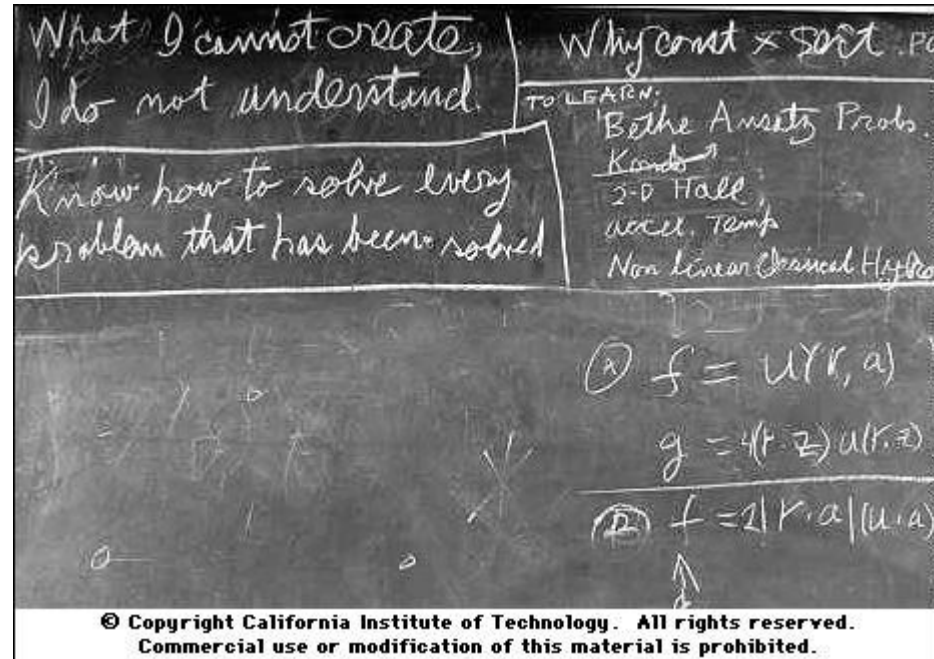 What I cannot create,
I do not understand.
Know how to solve every
problem that has been solved
Why const × sort .PO
TO LEARN:
Bethe Ansatz Probs.
Kondo
2-D Hall
accel. Temp
Non linear Classical Hydro
Ⓐ f = u(r, a)
g = 4(r·z) u(r.z)
f = 2|r·a|(u·a)
© Copyright California Institute of Technology. All rights reserved.
Commercial use or modification of this material is prohibited.